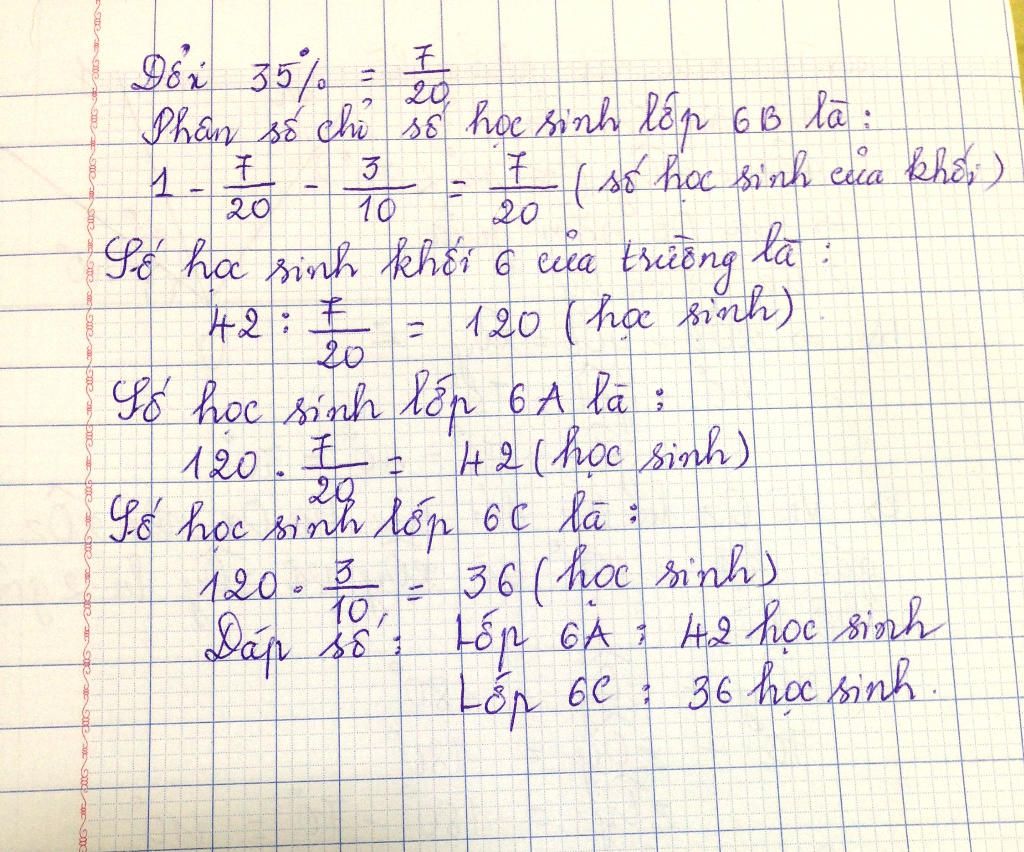 Đổi 35% = 7/20
Phân số chỉ số học sinh lớp 6B là:
1 - 7/20 - 3/10 = 7/20 (số học sinh của khối)
Số học sinh khối 6 của trường là:
42 : 7/20 = 120 (học sinh)
Số học sinh lớp 6A là:
120 . 7/20 = 42 (học sinh)
Số học sinh lớp 6C là:
120 . 3/10 = 36 (học sinh)
Đáp số: Lớp 6A: 42 học sinh
Lớp 6C: 36 học sinh.